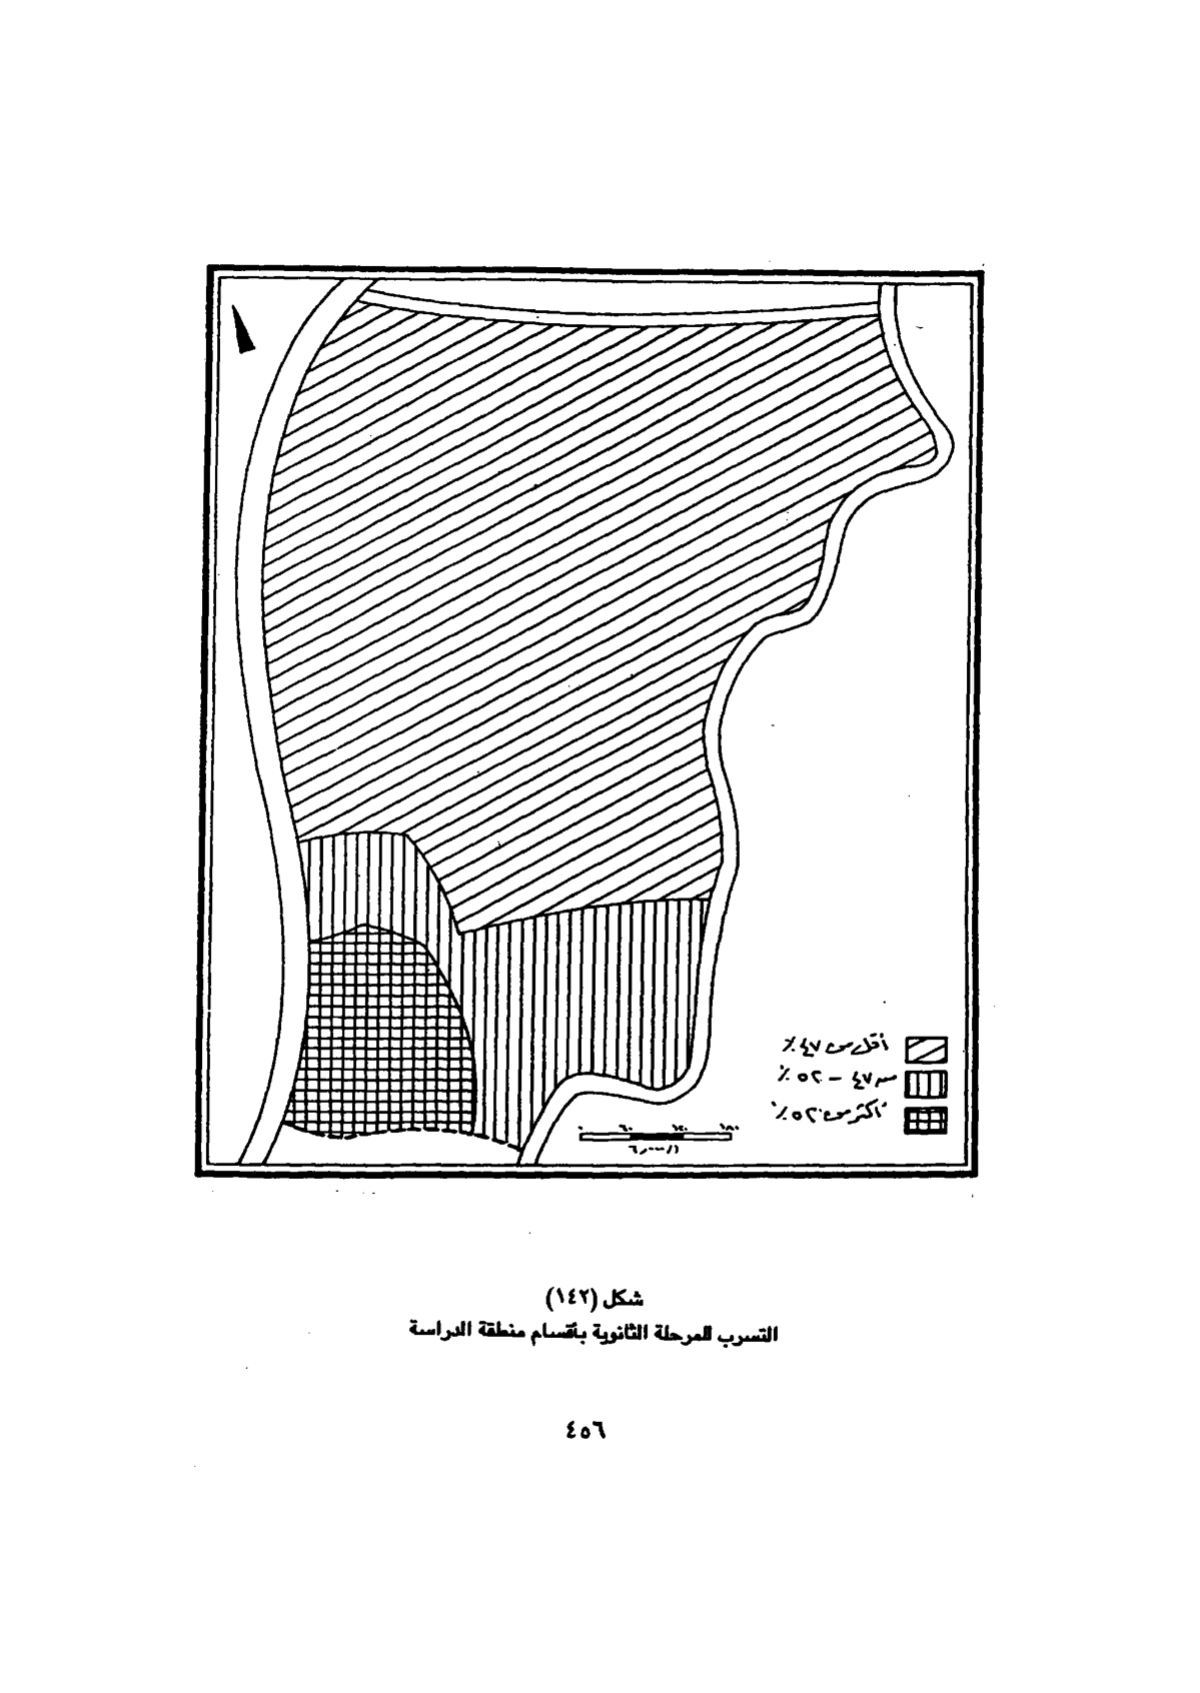 أقل من ٤٧٪
من ٤٧ – ٥٢٪
أكثر من ٥٢٪
٠ ٦٠ ١٢٠ ١٨٠
شكل (١٤٢)
التسرب للمرحلة الثانوية بأقسام منطقة الدراسة
٤٥٦